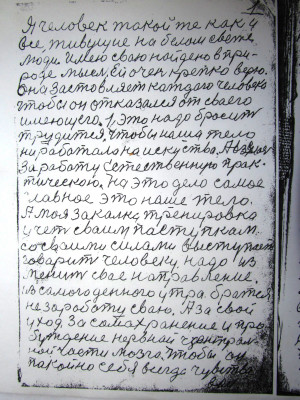 1
Я человек такой те как и
все живущие на белом свете
люди имею сваю найдено в при-
роде мысл. Ей очен крепко верю.
Она заставляет каждого человека
чтобы он отказался от своего
имеющего. 1. Это надо бросит
трудится. Чтобы наша тело
ни работала на искуства. А взялас
за работу естественную прак-
тическою, на это дело самое
главное это наше тело.
А моя закалка тренировка
учет своим паступкам.
со своими силами выступает
говорит человеку надо из
менит свое направление.
из самого денного утра братся
не за работу сваю. А за свой
уход за сохранение и про
буждение нервной централ
ной части мозга. Чтобы он
пакойно себя всегда чувства